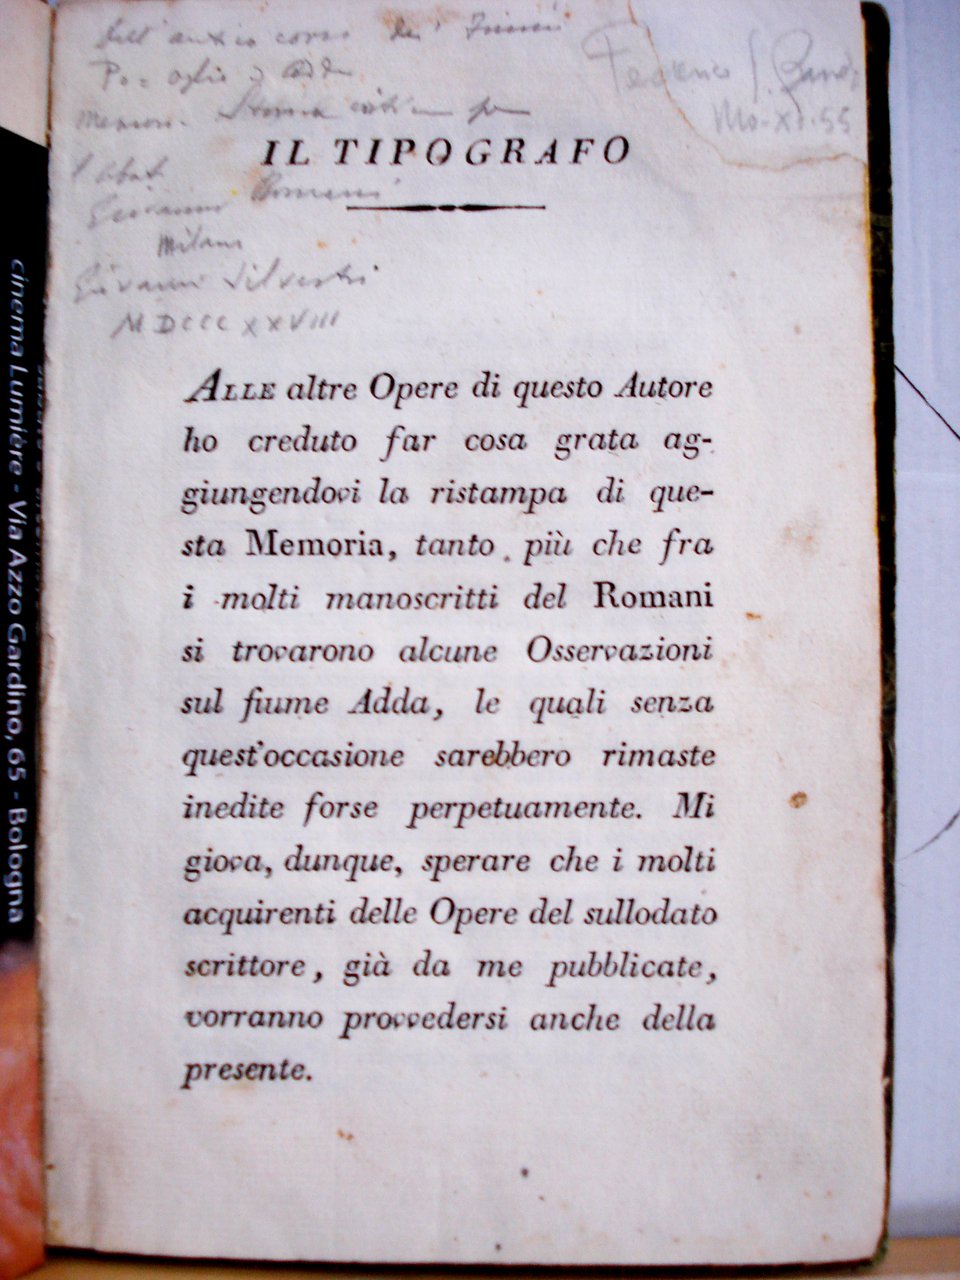 Dell' antico corso dei Fiumi
Po = Oglio ed Adda
Memoria Storico critica
l'Abate
Giovanni Romani
Milano
Giovanni Silvestri
MDCCCXXVIII
Federico G.
XI.55
IL TIPOGRAFO
ALLE altre Opere di questo Autore
ho creduto far cosa grata ag-
giungendovi la ristampa di que-
sta Memoria, tanto più che fra
i molti manoscritti del Romani
si trovarono alcune Osservazioni
sul fiume Adda, le quali senza
quest'occasione sarebbero rimaste
inedite forse perpetuamente. Mi
giova, dunque, sperare che i molti
acquirenti delle Opere del sullodato
scrittore, già da me pubblicate,
vorranno provvedersi anche della
presente.
cinema Lumière - Via Azzo Gardino, 65 - Bologna